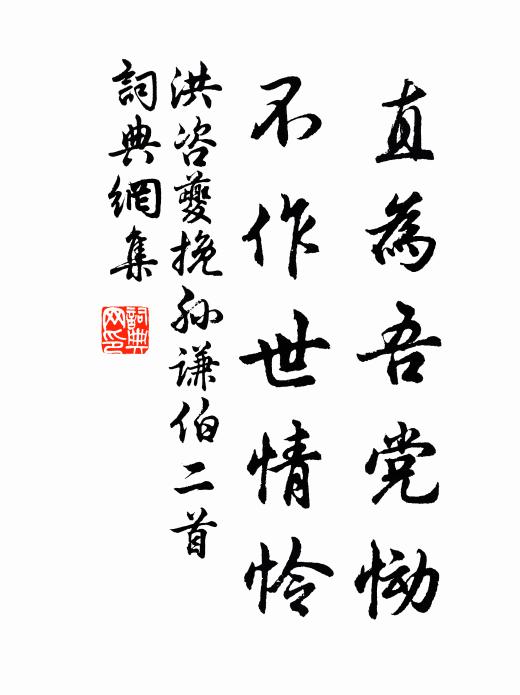 直為吾党恸
不作世情怜
洪咨夔挽孙謙伯二首
詞典網集
詞典网印